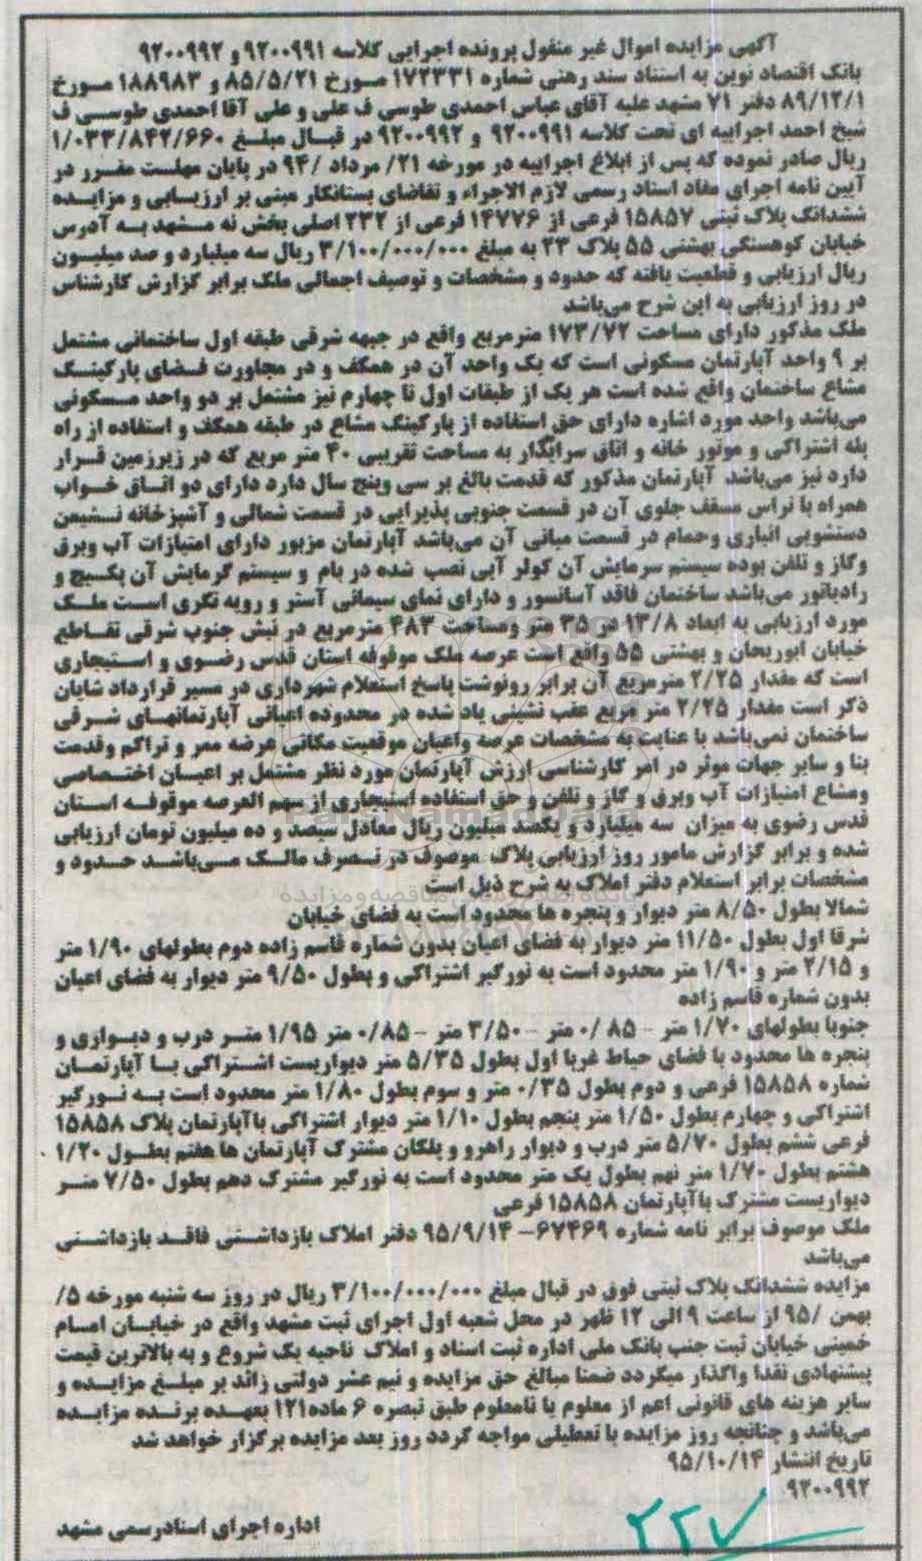 آگهی مزایده اموال غیر منقول پرونده اجرایی کلاسه ۹۲۰۰۹۹۱ و ۹۲۰۰۹۹۲
بانک اقتصاد نوین به استناد سند رهنی شماره ۱۷۲۳۳۱ مورخ ۸۵/۵/۲۱ و ۱۸۸۹۸۳ مورخ
۸۹/۱۲/۱ دفتر ۷۱ مشهد علیه آقای عباس احمدی طوسی ف علی و علی آقا احمدی طوسی ف
شیخ احمد اجراییه ای تحت کلاسه ۹۲۰۰۹۹۱ و ۹۲۰۰۹۹۲ در قبال مبلغ ۱/۰۳۳/۸۴۲/۶۶۰
ریال صادر نموده که پس از ابلاغ اجراییه در مورخه ۲۱/ مرداد /۹۴ در پایان مهلت مقرر در
آیین نامه اجرای مفاد اسناد رسمی لازم الاجراء و تقاضای بستانکار مبنی بر ارزیابی و مزایده
ششدانگ پلاک ثبتی ۱۵۸۵۷ فرعی از ۱۴۷۷۶ فرعی از ۲۳۲ اصلی بخش نه مشهد به آدرس
خیابان کوهسنگی بهشتی ۵۵ پلاک ۲۳ به مبلغ ۳/۱۰۰/۰۰۰/۰۰۰ ریال سه میلیارد و صد میلیون
ریال ارزیابی و قطعیت یافته که حدود و مشخصات و توصیف اجمالی ملک برابر گزارش کارشناس
در روز ارزیابی به این شرح می‌باشد
ملک مذکور دارای مساحت ۱۷۳/۷۲ مترمربع واقع در جبهه شرقی طبقه اول ساختمانی مشتمل
بر ۹ واحد آپارتمان مسکونی است که یک واحد آن در همکف و در مجاورت فضای پارکینگ
مشاع ساختمان واقع شده است هر یک از طبقات اول تا چهارم نیز مشتمل بر دو واحد مسکونی
می‌باشد واحد مورد اشاره دارای حق استفاده از پارکینگ مشاع در طبقه همکف و استفاده از راه
پله اشتراکی و موتور خانه و اتاق سرایدار به مساحت تقریبی ۴۰ متر مربع که در زیرزمین قرار
دارد نیز می‌باشد آپارتمان مذکور که قدمت بالغ بر سی وپنج سال دارد دارای دو اتاق خواب
همراه با تراس مسقف جلوی آن در قسمت جنوبی پذیرایی در قسمت شمالی و آشپزخانه نشیمن
دستشویی انباری وحمام در قسمت میانی آن می‌باشد آپارتمان مزبور دارای امتیازات آب وبرق
وگاز و تلفن بوده سیستم سرمایش آن کولر آبی نصب شده در بام و سیستم گرمایش آن پکیج و
رادیاتور می‌باشد ساختمان فاقد آسانسور و دارای نمای سیمانی آستر و رویه تگری است ملک
مورد ارزیابی به ابعاد ۱۳/۸ در ۳۵ متر ومساحت ۴۸۳ مترمربع در نبش جنوب شرقی تقاطع
خیابان ابوریحان و بهشتی ۵۵ واقع است عرصه ملک موقوفه استان قدس رضوی و استیجاری
است که مقدار ۲/۲۵ مترمربع آن برابر رونوشت پاسخ استعلام شهرداری در مسیر قرارداد شایان
ذکر است مقدار ۲/۲۵ متر مربع عقب نشینی یاد شده در محدوده اعیانی آپارتمانهای شرقی
ساختمان نمی‌باشد با عنایت به مشخصات عرصه واعیان موقعیت مکانی عرضه ممر و تراکم وقدمت
بنا و سایر جهات موثر در امر کارشناسی ارزش آپارتمان مورد نظر مشتمل بر اعیان اختصاصی
ومشاع امتیازات آب وبرق و گاز و تلفن و حق استفاده استیجاری از سهم العرصه موقوفه استان
قدس رضوی به میزان سه میلیارد و یکصد میلیون ریال معادل سیصد و ده میلیون تومان ارزیابی
شده و برابر گزارش مامور روز ارزیابی پلاک موصوف در تصرف مالک می‌باشد حدود و
مشخصات برابر استعلام دفتر املاک به شرح ذیل است
شمالا بطول ۸/۵۰ متر دیوار و پنجره ها محدود است به فضای خیابان
شرقا اول بطول ۱۱/۵۰ متر دیوار به فضای اعیان بدون شماره قاسم زاده دوم بطولهای ۱/۹۰ متر
و ۲/۱۵ متر و ۱/۹۰ متر محدود است به نورگیر اشتراکی و بطول ۹/۵۰ متر دیوار به فضای اعیان
بدون شماره قاسم زاده
جنوبا بطولهای ۱/۷۰ متر - ۰/۸۵ متر - ۳/۵۰ متر - ۰/۸۵ متر ۱/۹۵ متر درب و دیواری و
پنجره ها محدود با فضای حیاط غربا اول بطول ۵/۳۵ متر دیواریست اشتراکی با آپارتمان
شماره ۱۵۸۵۸ فرعی و دوم بطول ۰/۳۵ متر و سوم بطول ۱/۸۰ متر محدود است به نورگیر
اشتراکی و چهارم بطول ۱/۵۰ متر پنجم بطول ۱/۱۰ متر دیوار اشتراکی باآپارتمان پلاک ۱۵۸۵۸
فرعی ششم بطول ۵/۷۰ متر درب و دیوار راهرو و پلکان مشترک آپارتمان ها هفتم بطول ۱/۲۰
هشتم بطول ۱/۷۰ متر نهم بطول یک متر محدود است به نورگیر مشترک دهم بطول ۷/۵۰ متر
دیواریست مشترک باآپارتمان ۱۵۸۵۸ فرعی
ملک موصوف برابر نامه شماره ۶۷۴۶۹- ۹۵/۹/۱۴ دفتر املاک بازداشتی فاقد بازداشتی
می‌باشد
مزایده ششدانگ پلاک ثبتی فوق در قبال مبلغ ۳/۱۰۰/۰۰۰/۰۰۰ ریال در روز سه شنبه مورخه ۵/
بهمن /۹۵ از ساعت ۹ الی ۱۲ ظهر در محل شعبه اول اجرای ثبت مشهد واقع در خیابان امام
خمینی خیابان ثبت جنب بانک ملی اداره ثبت اسناد و املاک ناحیه یک شروع و به بالاترین قیمت
پیشنهادی نقدا واگذار میگردد ضمنا مبالغ حق مزایده و نیم عشر دولتی زائد بر مبلغ مزایده و
سایر هزینه های قانونی اعم از معلوم یا نامعلوم طبق تبصره ۶ ماده۱۲۱ بعهده برنده مزایده
می‌باشد و چنانچه روز مزایده با تعطیلی مواجه گردد روز بعد مزایده برگزار خواهد شد
تاریخ انتشار ۹۵/۱۰/۱۴
۹۲۰۰۹۹۲
اداره اجرای اسنادرسمی مشهد
۲۲۷